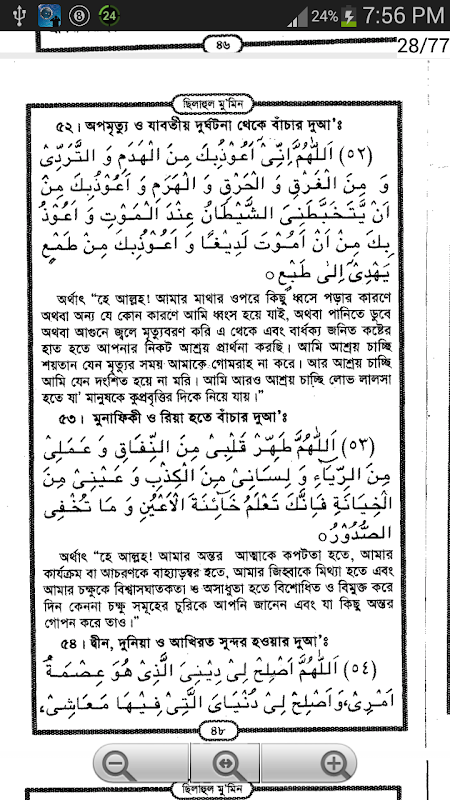 24% 7:56 PM
8
24
৪৬
28/77
ছিলাহুল মু'মিন
৫২। অপমৃত্যু ও যাবতীয় দুর্ঘটনা থেকে বাঁচার দুআ'ঃ
(٥٢) اَللّٰهُمَّ اِنِّىْ اَعُوْذُبِكَ مِنَ الْهَدَمِ وَ التَّرَدِّىْ
وَ مِنَ الْغَرَقِ وَ الْحَرَقِ وَ الْهَرَمِ وَ اَعُوْذُبِكَ مِنْ
اَنْ يَّتَخَبَّطَنِىَ الشَّيْطَانُ عِنْدَ الْمَوْتِ وَ اَعُوْذُ
بِكَ مِنْ اَنْ اَمُوْتَ لَدِيْغًا وَ اَعُوْذُبِكَ مِنْ طَمْعٍ
يَهْدِىْ اِلٰى طَبْعٍ ○
অর্থাৎ “হে আল্লহ! আমার মাথার ওপরে কিছু ধ্বসে পড়ার কারণে
অথবা অন্য যে কোন কারণে আমি ধ্বংস হয়ে যাই, অথবা পানিতে ডুবে
অথবা আগুনে জ্বলে মৃত্যুবরণ করি এ থেকে এবং বার্ধক্য জনিত কষ্টের
হাত হতে আপনার নিকট আশ্রয় প্রার্থনা করছি। আমি আশ্রয় চাচ্ছি
শয়তান যেন মৃত্যুর সময় আমাকে গোমরাহ না করে। আর আশ্রয় চাচ্ছি
আমি যেন দংশিত হয়ে না মরি। আমি আরও আশ্রয় চাচ্ছি লোভ লালসা
হতে যা' মানুষকে কুপ্রবৃত্তির দিকে নিয়ে যায়।”
৫৩। মুনাফিকী ও রিয়া হতে বাঁচার দুআ'ঃ
(٥٣) اَللّٰهُمَّ طَهِّرْ قَلْبِىْ مِنَ النِّفَاقِ وَ عَمَلِىْ
مِنَ الرِّيَاءِ وَ لِسَانِىْ مِنَ الْكِذْبِ وَ عَيْنِىْ مِنَ
الْخِيَانَةِ فَاِنَّكَ تَعْلَمُ خَائِنَةَ الْاَعْيُنِ وَ مَا تُخْفِى
الصُّدُوْرُ ○
অর্থাৎ “হে আল্লহ! আমার অন্তর আত্মাকে কপটতা হতে, আমার
কার্যক্রম বা আচরণকে বাহ্যাড়ম্বর হতে, আমার জিহ্বাকে মিথ্যা হতে এবং
আমার চক্ষুকে বিশ্বাসঘাতকতা ঙ অসাধুতা হতে বিশোধিত ও বিমুক্ত করে
দিন কেননা চক্ষু সমূহের চুরিকে আপনি জানেন এবং যা কিছু অন্তর
গোপন করে তাও।”
৫৪। দ্বীন, দুনিয়া ও আখিরত সুন্দর হওয়ার দুআ'ঃ
(٥٤) اَللّٰهُمَّ اَصْلِحْ لِىْ دِيْنِىَ الَّذِىْ هُوَ عِصْمَةُ
اَمْرِىْ، وَاَصْلِحْ لِىْ دُنْيَاىَ الَّتِىْ فِيْهَا مَعَاشِىْ،
৪৮
ছিলাহুল মু'মিন